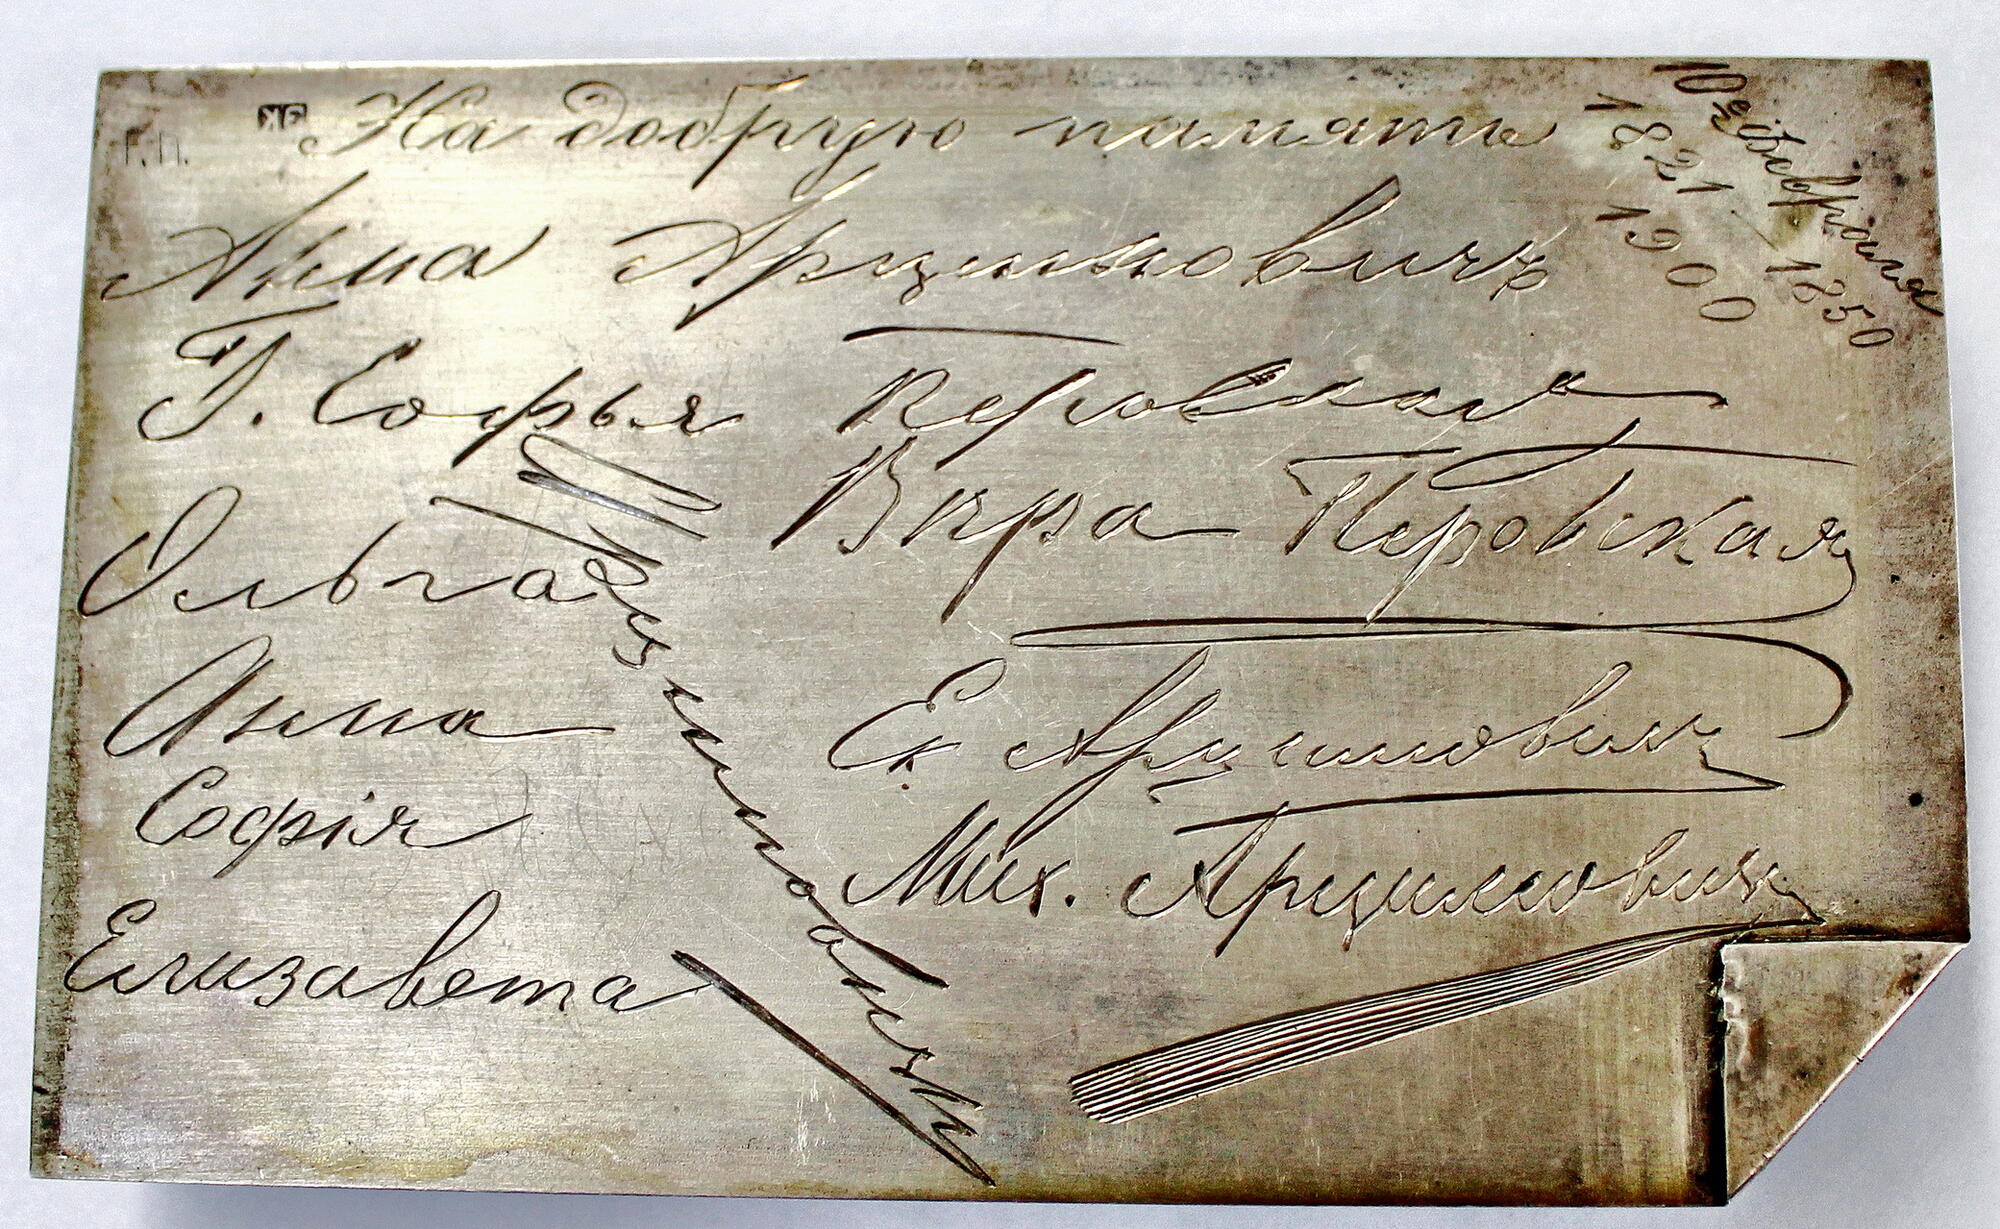 Г.П.
ЖГ
На добрую память
10го февраля
1821 – 1850
1900
Анна Арцимовичъ
Г. Софья Перовская
Вѣра Перовская
Ольга
Анна
Софія
Елизавета
Арцимовичи
Ек Арцимовичъ
Мих. Арцимовичъ